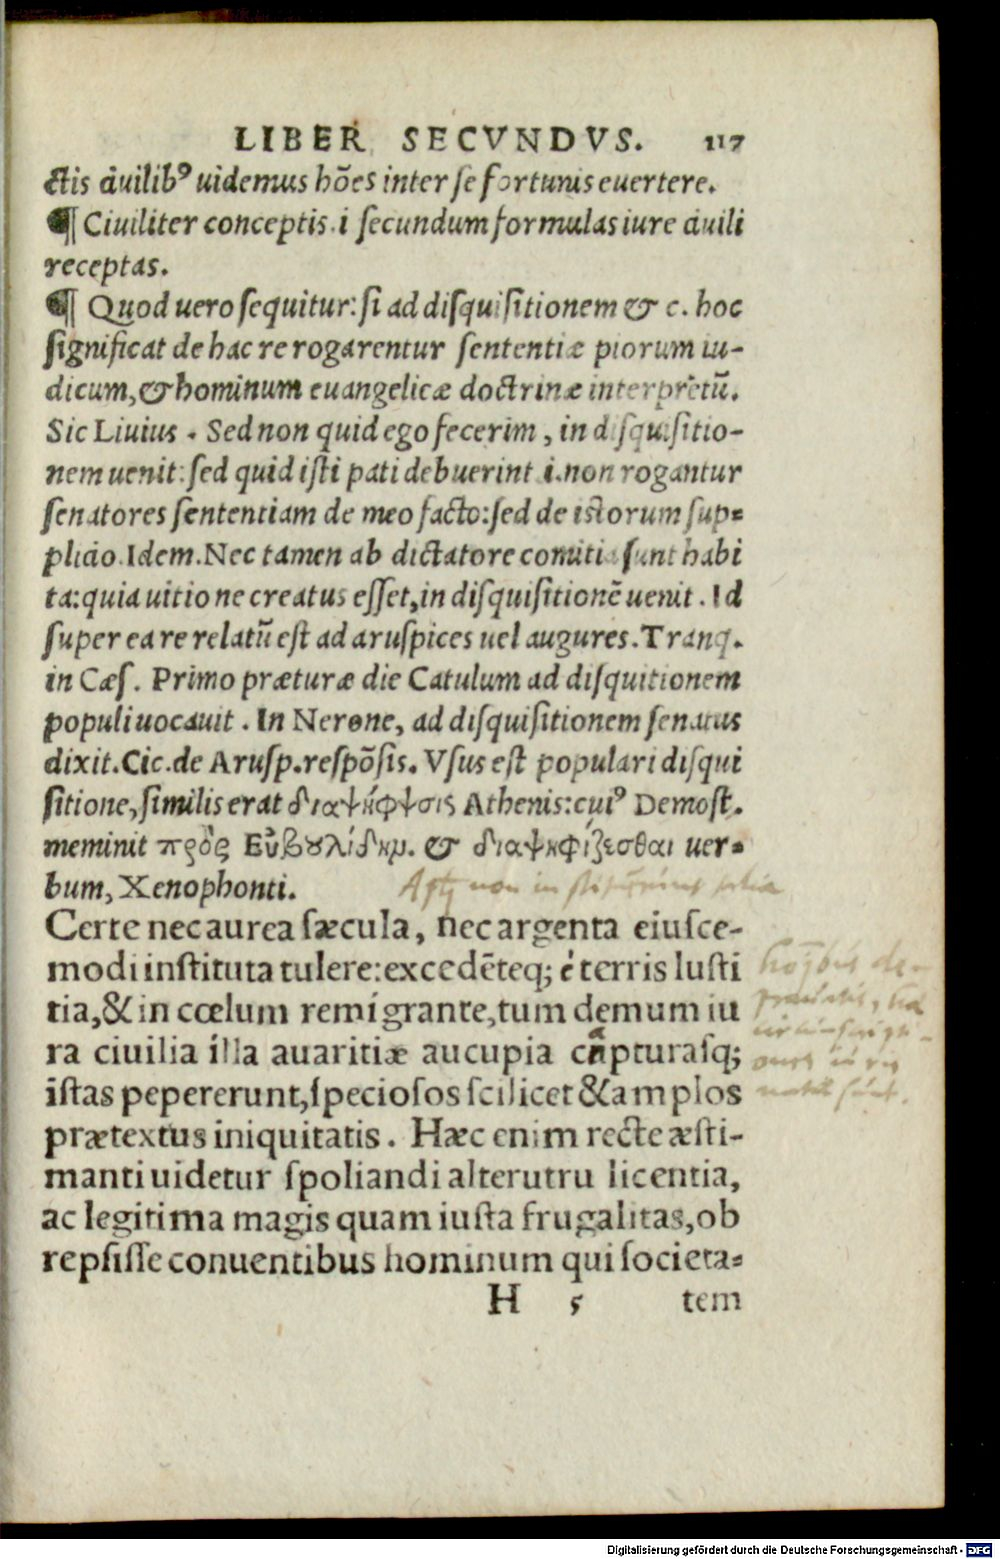 LIBER SECVNDVS. 117
ctis ciuilibꝰ uidemus hões inter se fortunis euertere.
¶ Ciuiliter conceptis .i secundum formulas iure ciuili
receptas.
¶ Quod uero sequitur: si ad disquisitionem & c. hoc
significat de hac re rogarentur sententiæ piorum iu-
dicum, & hominum euangelicæ doctrinæ interpretũ.
Sic Liuius . Sed non quid ego fecerim, in disquisitio-
nem uenit: sed quid isti pati debuerint .i. non rogantur
senatores sententiam de meo facto: sed de istorum sup-
plicio. Idem. Nec tamen ab dictatore comitia sunt habi
ta: quia uitio ne creatus esset, in disquisitionẽ uenit . Id
super ea re relatũ est ad aruspices uel augures. Tranq.
in Cæs. Primo præturæ die Catulum ad disquitionem
populi uocauit . In Nerone, ad disquisitionem senatus
dixit. Cic. de Arusp. respõsis. Vsus est populari disqui
sitione, similis erat διαψήφψσις Athenis: cuiꝰ Demost.
meminit πρὸς Εὐβουλίδημ. & διαψηφίζεσθαι uer-
bum, Xenophonti.
non in
Certe nec aurea sæcula, nec argenta eiusce-
modi instituta tulere: excedẽteq; è terris Iusti
tia, & in cœlum remigrante, tum demum iu
ra ciuilia illa auaritiæ aucupia cnpturasq; a
istas pepererunt, speciosos scilicet & amplos
prætextus iniquitatis. Hæc enim recte æsti-
manti uidetur spoliandi alterutru licentia,
ac legitima magis quam iusta frugalitas, ob
repsisse conuentibus hominum qui societa-
H 5 tem
Digitalisierung gefördert durch die Deutsche Forschungsgemeinschaft - DFG